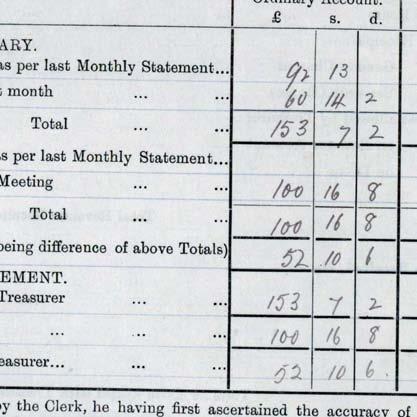 Ordinary Account.
£ s. d.
ARY.
as per last Monthly Statement... 92 13
t month ... ... 60 14 2
Total ... ... 153 7 2
as per last Monthly Statement...
Meeting ... ... 100 16 8
Total ... ... 100 16 8
being difference of above Totals) 52 10 6
EMENT.
Treasurer ... ... 153 7 2
... ... 100 16 8
easurer... ... 52 10 6.
by the Clerk, he having first ascertained the accuracy of